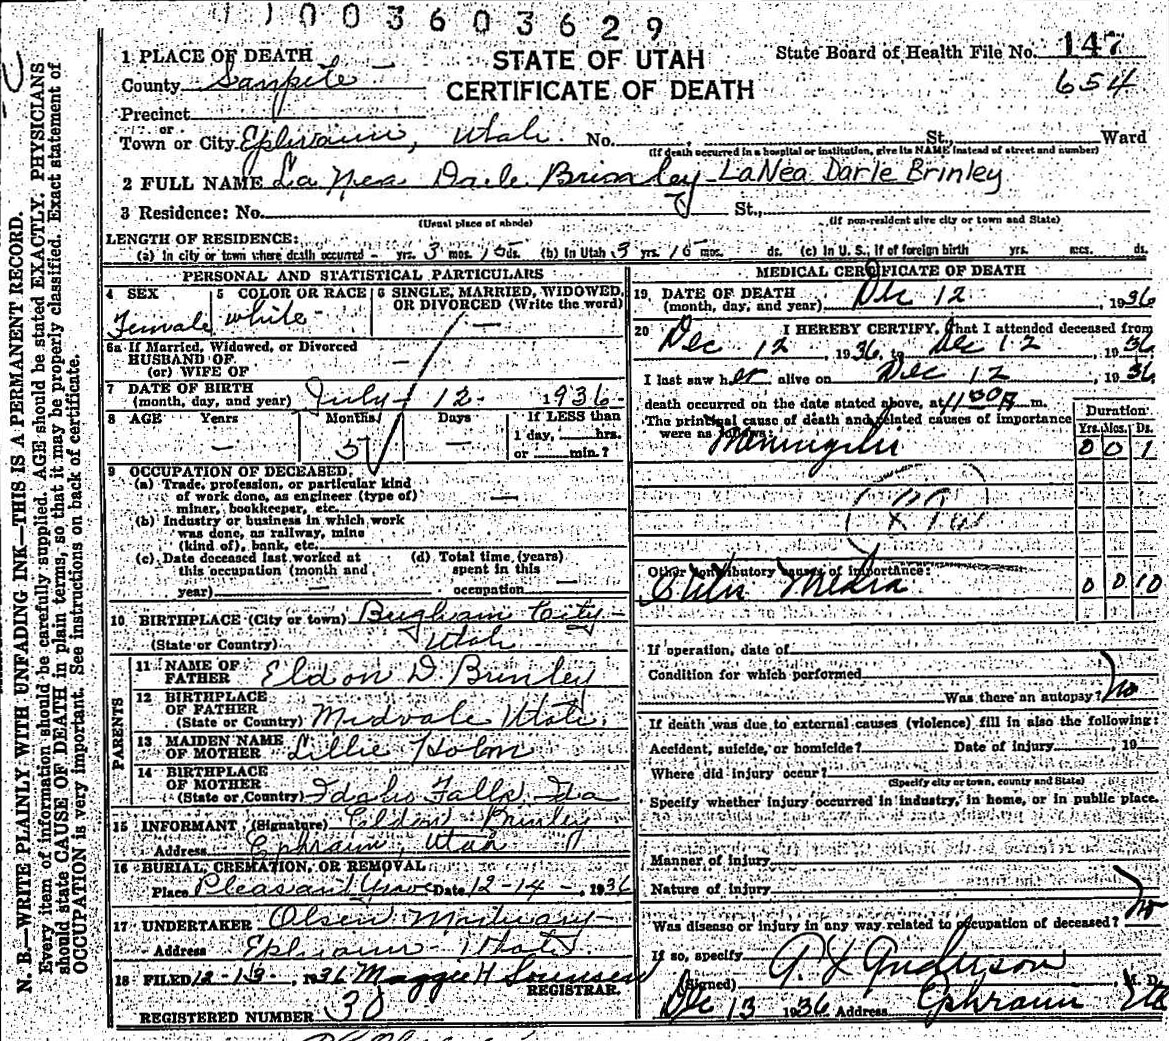 1003603629
1 PLACE OF DEATH
County Sanpete
Precinct
or
Town or City Ephraim, Utah No. St., Ward
(If death occurred in a hospital or institution, give its NAME instead of street and number)
STATE OF UTAH
CERTIFICATE OF DEATH
State Board of Health File No. 147
654
2 FULL NAME La Nea Darle Brinley LaNea Darle Brinley
3 Residence: No. St.,
(Usual place of abode) (If non-resident give city or town and State)
LENGTH OF RESIDENCE:
(a) In city or town where death occurred - yrs. 3 mos. 15 ds. (b) In Utah 3 yrs. 15 mos. ds. (c) In U. S., if of foreign birth yrs. mos. ds.
PERSONAL AND STATISTICAL PARTICULARS
4 SEX
Female
5 COLOR OR RACE
white
6 SINGLE, MARRIED, WIDOWED,
OR DIVORCED (Write the word)
—
6a If Married, Widowed, or Divorced
HUSBAND OF
(or) WIFE OF —
7 DATE OF BIRTH
(month, day, and year) July - 12 - 1936 -
8 AGE Years Months Days If LESS than
1 day, hrs.
— 5 — or min.?
9 OCCUPATION OF DECEASED,
(a) Trade, profession, or particular kind
of work done, as engineer (type of)
miner, bookkeeper, etc. —
(b) Industry or business in which work
was done, as railway, mine
(kind of), bank, etc.
(c) Date deceased last worked at
this occupation (month and
year) —
(d) Total time (years)
spent in this
occupation —
10 BIRTHPLACE (City or town) Brigham City -
(State or Country) Utah
PARENTS
11 NAME OF
FATHER Eldon D. Brinley
12 BIRTHPLACE
OF FATHER
(State or Country) Midvale Utah.
13 MAIDEN NAME
OF MOTHER Lillie Holm
14 BIRTHPLACE
OF MOTHER
(State or Country) Idaho Falls, Ida
15 INFORMANT (Signature) Eldon Brinley
Address Ephraim, Utah
16 BURIAL, CREMATION, OR REMOVAL
Place Pleasant Grove Date 12-14-, 1936
17 UNDERTAKER Olsen Mortuary -
Address Ephraim - Utah
18 FILED 12-13, 1936 Maggie H Sorensen
REGISTRAR.
REGISTERED NUMBER 30
MEDICAL CERTIFICATE OF DEATH
19 DATE OF DEATH
(month, day, and year) Dec 12, 1936
20 I HEREBY CERTIFY, that I attended deceased from
Dec 12, 1936, to Dec 12 1936
I last saw her alive on Dec 12, 1936,
death occurred on the date stated above, at 11:00 A m.
The principal cause of death and related causes of importance
were as follows:
Meningitis
Duration
Yrs. Mos. Ds.
0 0 1
Other contributory causes of importance:
Otitis Media 0 0 10
If operation, date of
Condition for which performed
Was there an autopsy? no
If death was due to external causes (violence) fill in also the following:
Accident, suicide, or homicide? Date of injury , 19
Where did injury occur?
(Specify city or town, county and State)
Specify whether injury occurred in industry, in home, or in public place.
Manner of injury
Nature of injury
Was disease or injury in any way related to occupation of deceased? no
If so, specify
(Signed) A J Anderson, M. D.
Dec 13 1936 Address Ephraim Utah
N. B.—WRITE PLAINLY WITH UNFADING INK—THIS IS A PERMANENT RECORD.
Every item of information should be carefully supplied. AGE should be stated EXACTLY. PHYSICIANS
should state CAUSE OF DEATH in plain terms, so that it may be properly classified. Exact statement of
OCCUPATION is very important. See instructions on back of certificate.